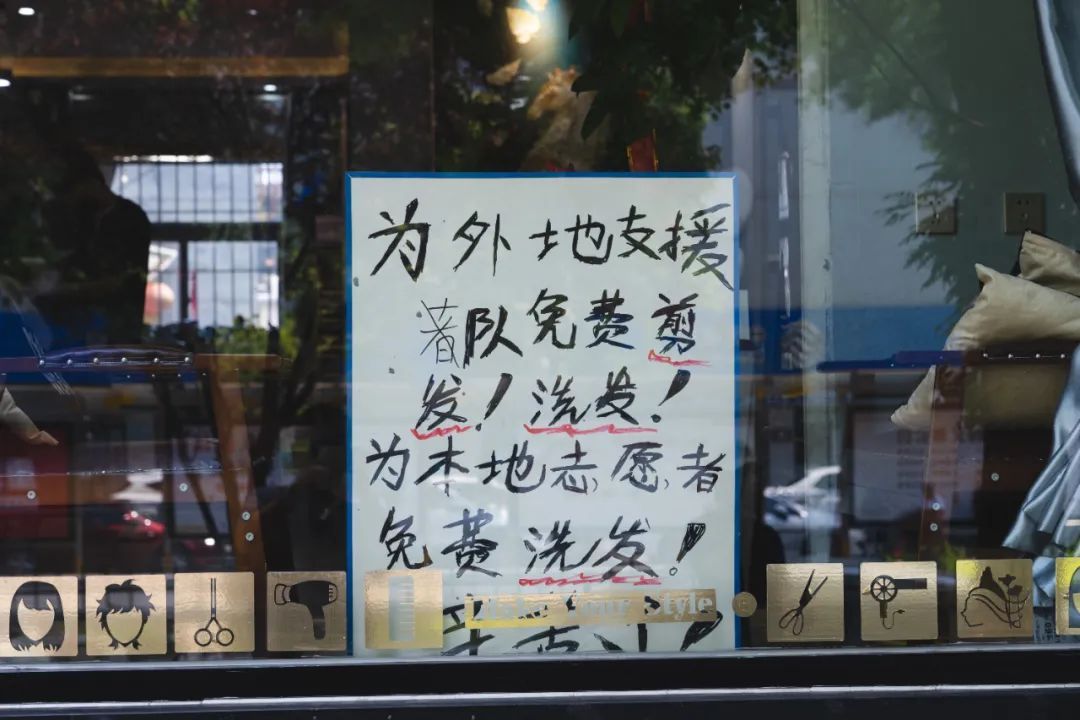 为外地支援
者队免费剪
发！洗发！
为本地志愿者
免费洗发！
Make Your Style